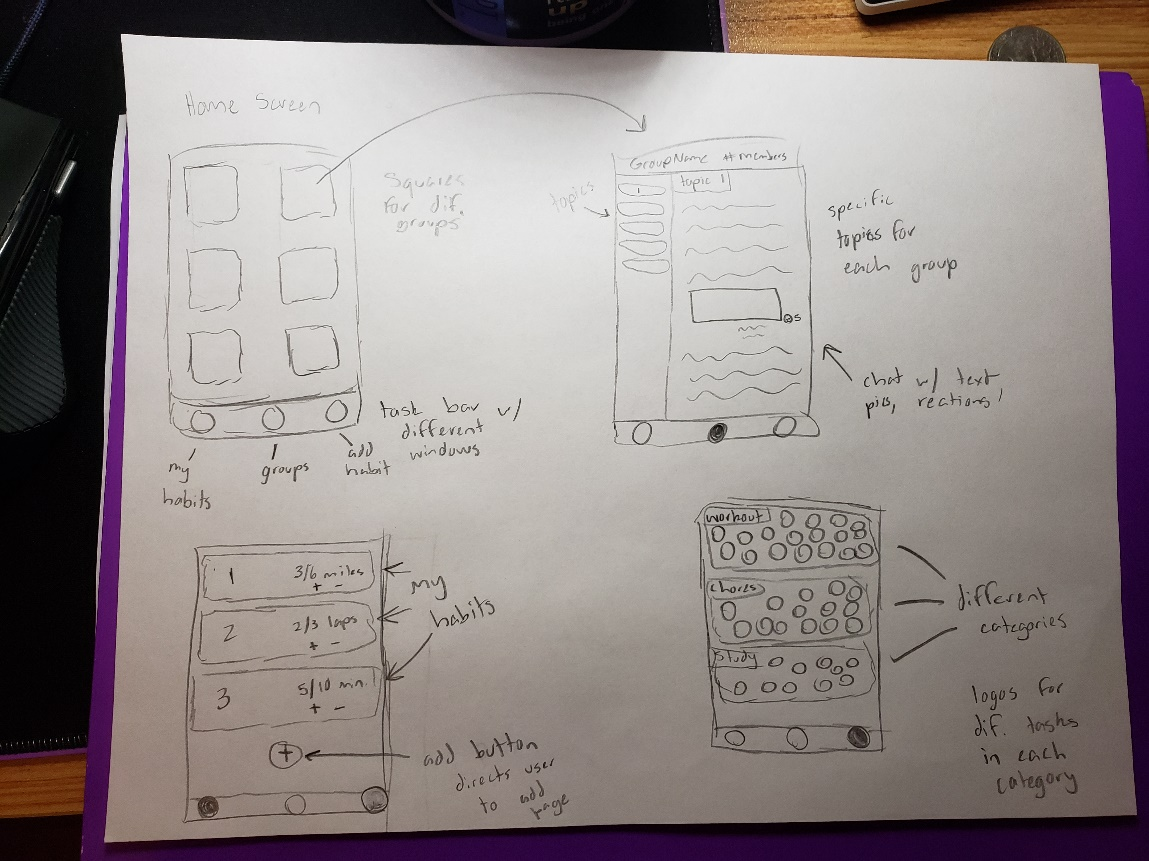 UP
being
Home Screen
Squares
for dif.
groups
task bar w/
different
windows
my
habits
groups
add
habit
GroupName # members
topics
1
topic 1
s
specific
topics for
each group
chat w/ text
pics, reations!
1
3/6 miles
+ -
2
2/3 laps
+ -
3
5/10 min.
+ -
my
habits
+
add button
directs user
to add
page
workout
chores
Study
different
categories
logos for
dif. tasks
in each
category